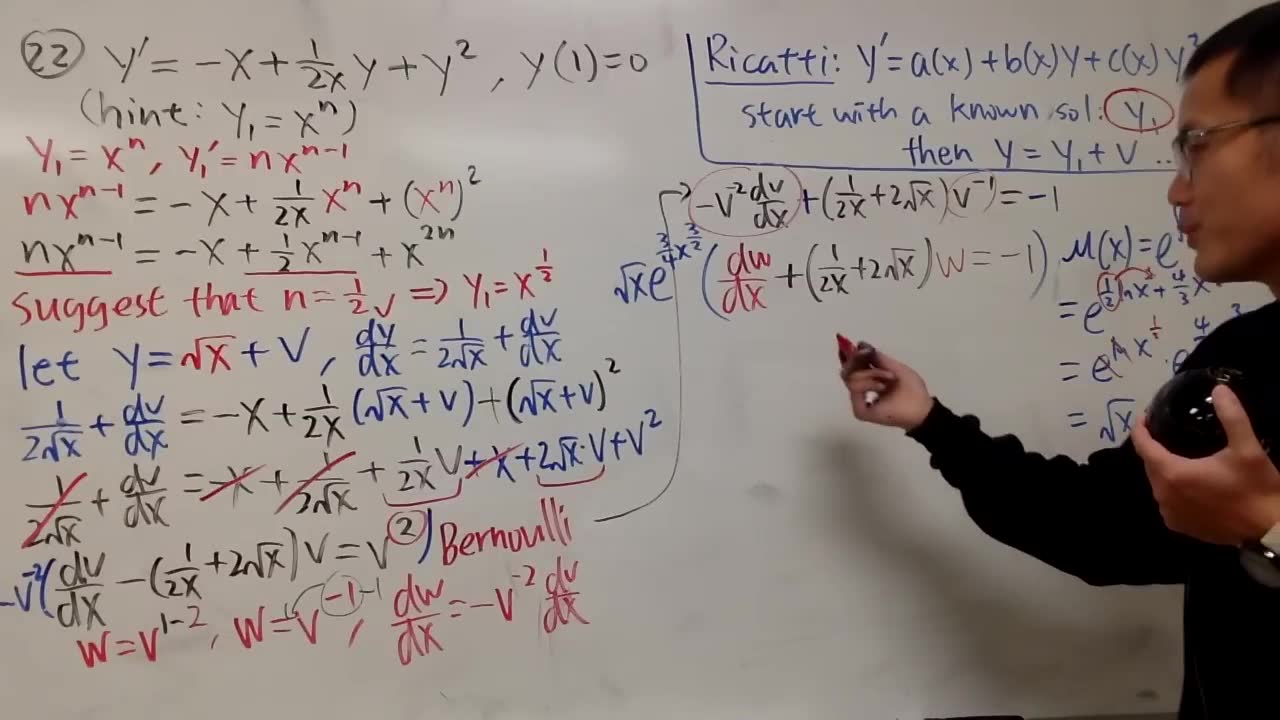 22 y' = -x + 1/(2x) y + y², y(1)=0
(hint: y₁ = xⁿ)
y₁ = xⁿ, y₁' = nxⁿ⁻¹
nxⁿ⁻¹ = -x + 1/(2x) xⁿ + (xⁿ)²
nxⁿ⁻¹ = -x + 1/2 xⁿ⁻¹ + x²ⁿ
suggest that n = 1/2 ✓ ⇒ y₁ = x^(1/2)
let y = √x + v, dy/dx = 1/(2√x) + dv/dx
1/(2√x) + dv/dx = -x + 1/(2x) (√x + v) + (√x + v)²
1/(2√x) + dv/dx = -x + 1/(2√x) + 1/(2x) v + x + 2√x·v + v²
-v⁻²(dv/dx - (1/(2x) + 2√x) v = v²) Bernoulli
w = v¹⁻², w = v⁻¹, dw/dx = -v⁻² dv/dx
Ricatti: y' = a(x) + b(x)y + c(x)y²
start with a known sol: y₁
then y = y₁ + v ...
-v⁻² dv/dx + (1/(2x) + 2√x) v⁻¹ = -1
√x e^(3/4 x^(3/2)) (dw/dx + (1/(2x) + 2√x) w = -1)
μ(x) = e
= e^(1/2 ln x + 4/3 x
= e^(ln x^(1/2)) · e^(4
= √x